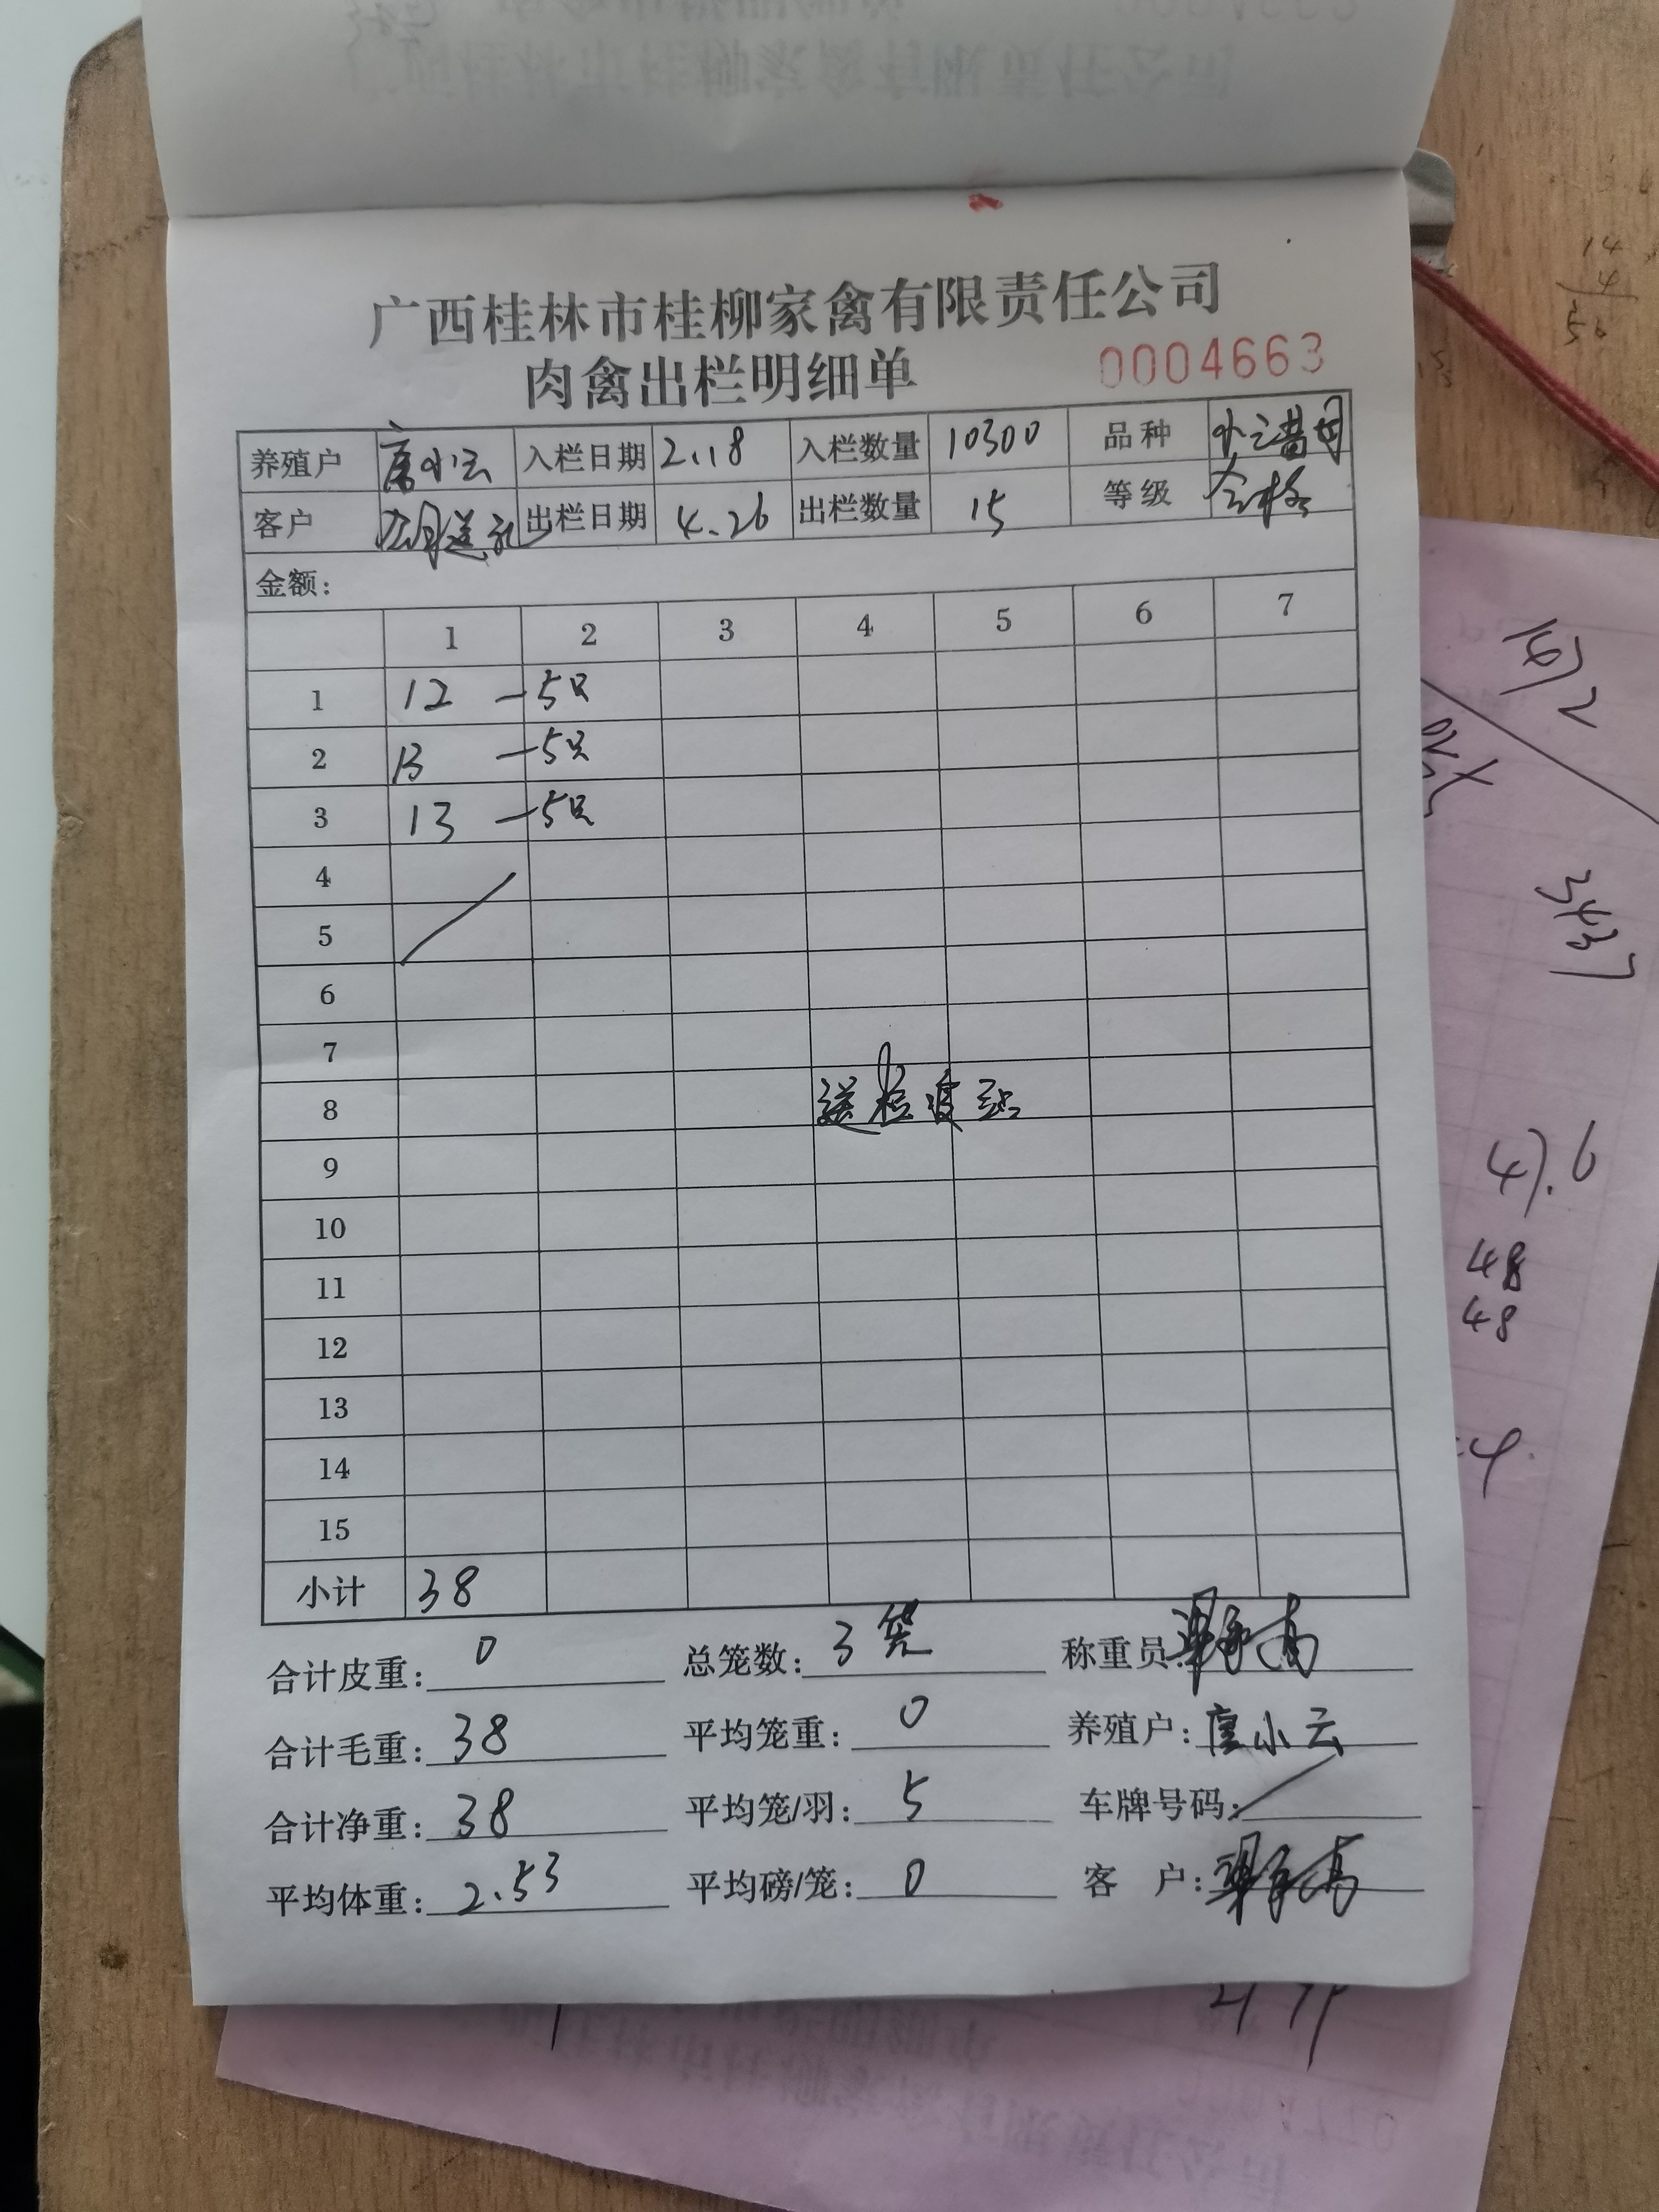 广西桂林市桂柳家禽有限责任公司
肉禽出栏明细单 0004663
养殖户 唐小云 入栏日期 2.18 入栏数量 10300 品种
客户 出栏日期 4.26 出栏数量 15 等级 合格
金额：
1 2 3 4 5 6 7
1 12 -5只
2 13 -5只
3 13 -5只
4
5
6
7
8 送检疫站
9
10
11
12
13
14
15
小计 38
合计皮重： 0 总笼数： 3笼 称重员：
合计毛重： 38 平均笼重： 0 养殖户： 唐小云
合计净重： 38 平均笼/羽： 5 车牌号码：
平均体重： 2.53 平均磅/笼： 0 客 户：
14
4
56
47.6
48
48